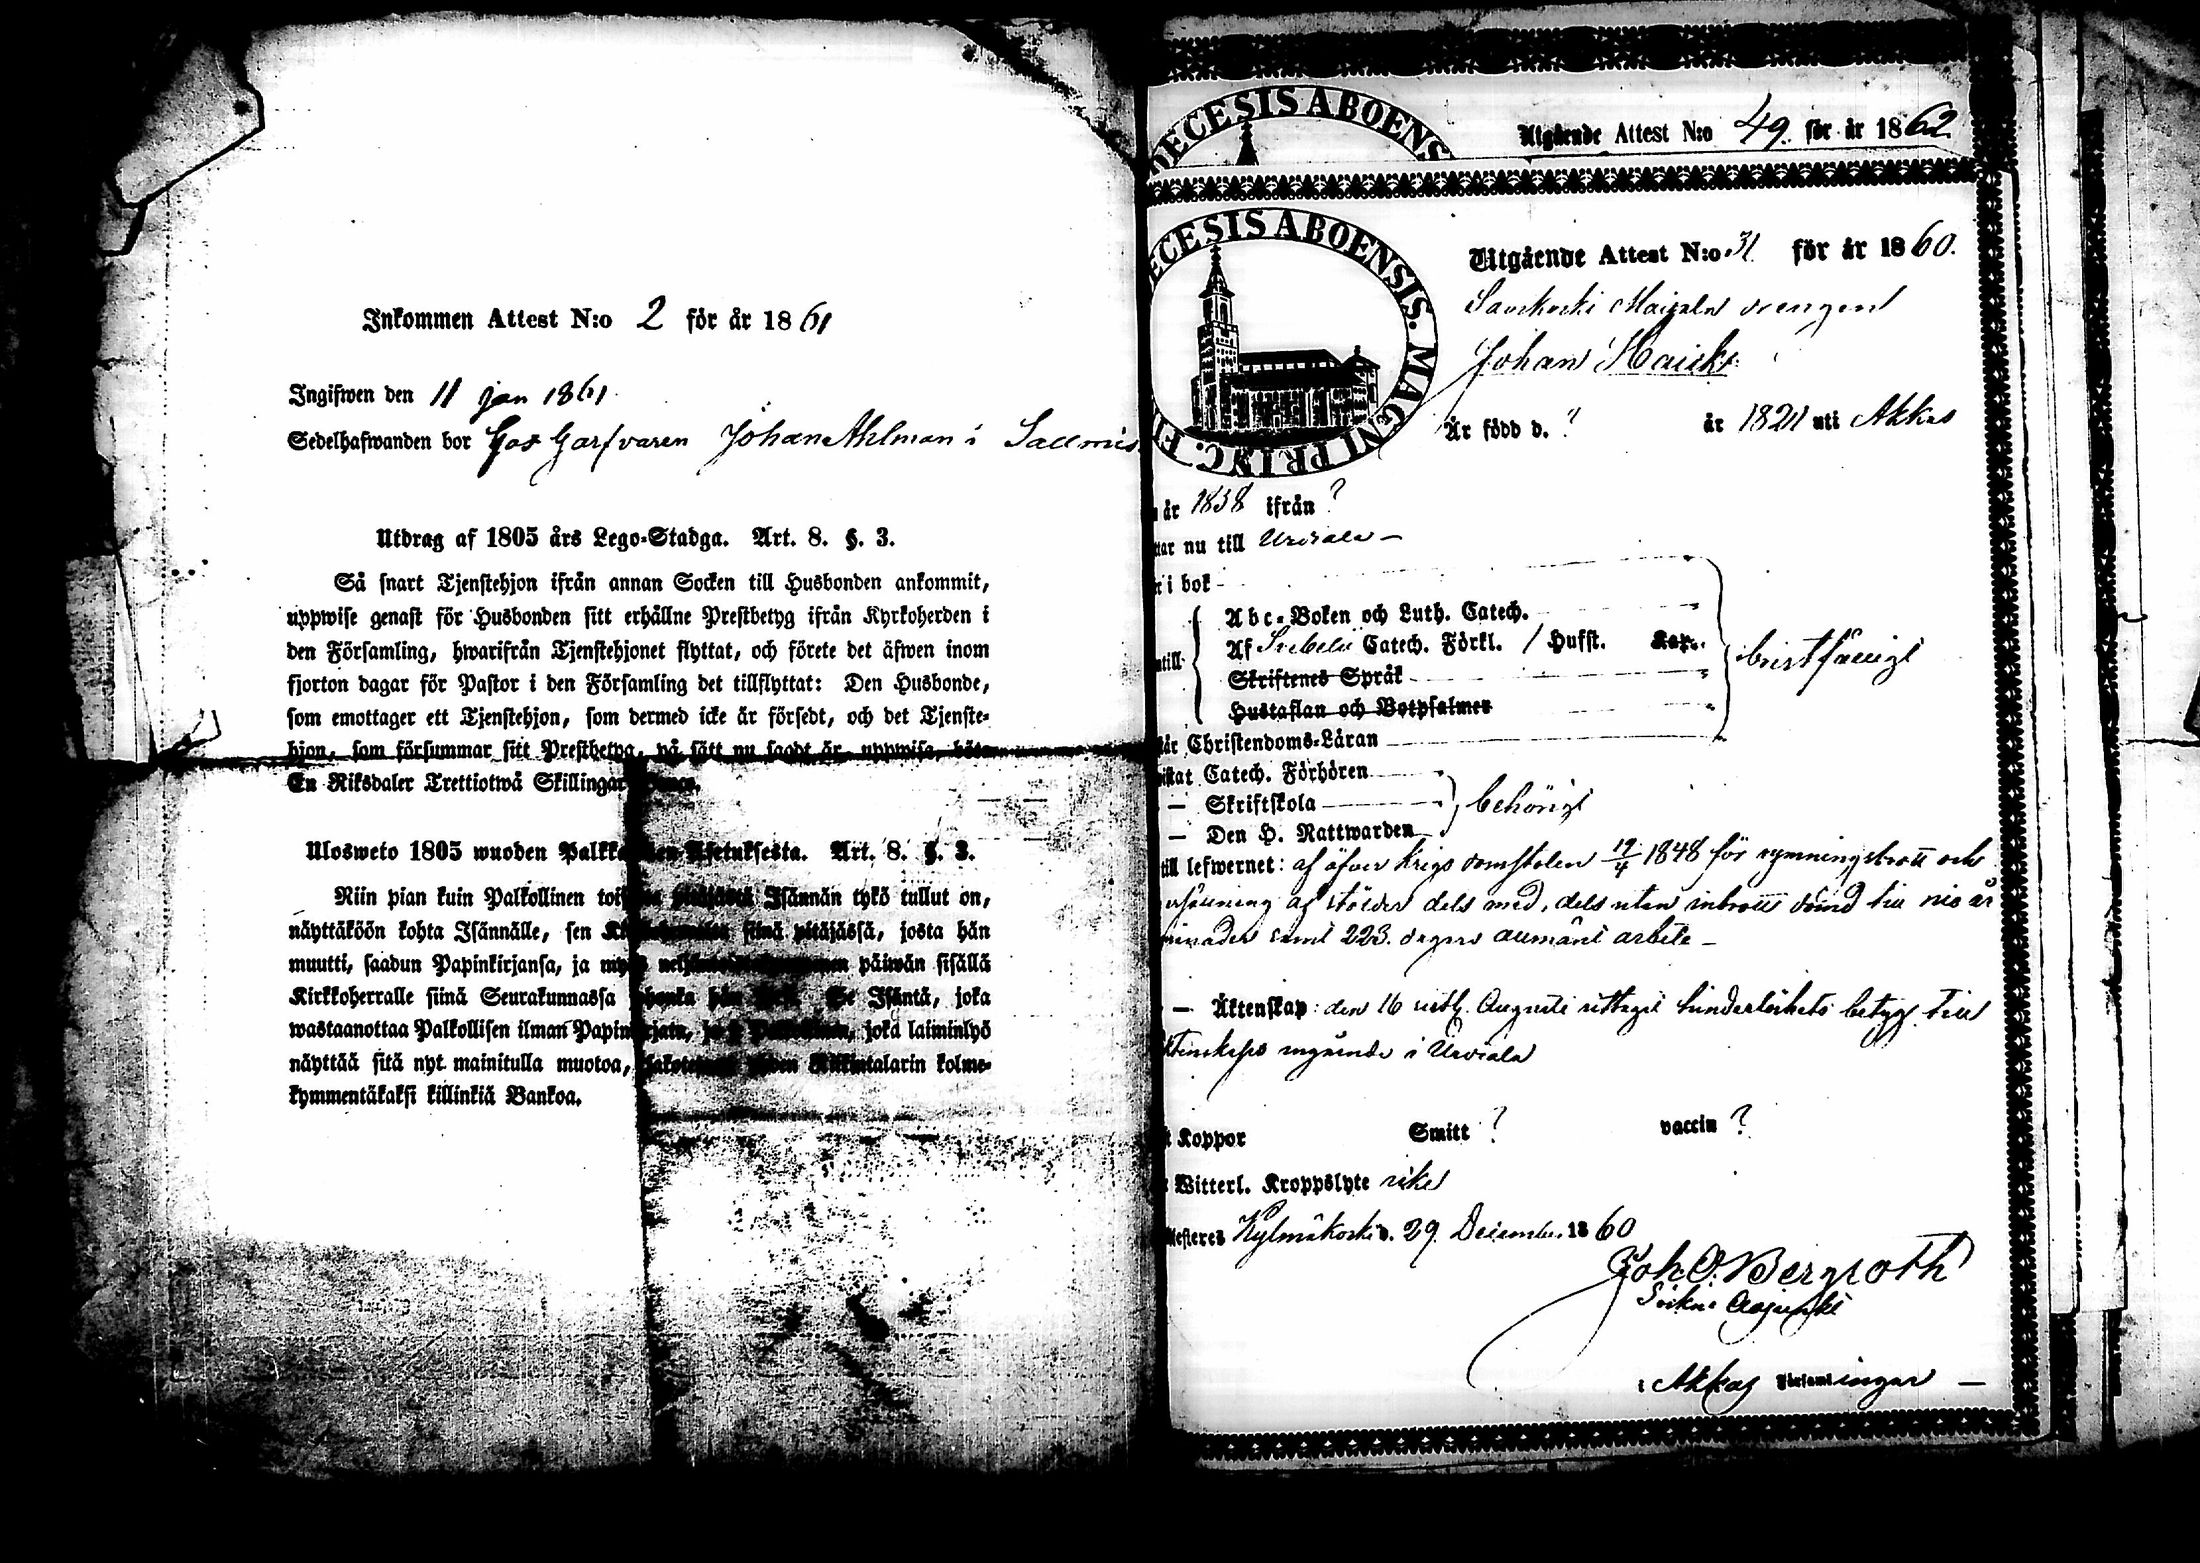 Inkommen Attest N:o 2 för år 1861
Ingifwen den 11 jan 1861.
Sedelhafwanden bor hos Garfvaren Johan Ahlman i Salmis
Utdrag af 1805 års Lego-Stadga. Art. 8. §. 3.
Så snart Tjenstehjon ifrån annan Socken till Husbonden ankommit,
uppwise genast för Husbonden sitt erhållne Prestbetyg ifrån Kyrkoherden i
den Församling, hwarifrån Tjenstehjonet flyttat, och förete det äfwen inom
fjorton dagar för Pastor i den Församling det tillflyttat: Den Husbonde,
som emottager ett Tjenstehjon, som dermed icke är försedt, och det Tjenste-
hjon, som försummar sitt Prestbetyg, på sätt nu sagdt är, uppwisa, böte
En Riksdaler Trettiotwå Skillingar
Ulosweto 1805 wuoden Asetuksesta. Art. 8. §. 3.
Niin pian kuin Palkollinen Isännän tykö tullut on,
näyttäköön kohta Isännälle, sen siinä pitäjässä, josta hän
muutti, saadun Papinkirjansa, ja päiwän sisällä
Kirkkoherralle siinä Seurakunnassa Se Isäntä, joka
wastaanottaa Palkollisen ilman joka laiminlyö
näyttää sitä nyt mainitulla muotoa, kolme-
kymmentäkaksi killinkiä Bankoa.
DECESIS ABOENS
Utgående Attest N:o 49. för år 1862
ECESIS ABOENSIS. MAGNI PRINC. FI
Utgående Attest N:o 31 för år 1860.
drengen
Johan
Är född d. ? år 1821 uti Akkas
år 1858 ifrån ?
tar nu till Urdiala –
r i bok –
Abc-Boken och Luth. Catech.
Af Svebelii Catech. Förkl. / Hufst. Kap.
ntill
Skriftenes Språk
Hustaflan och Botpsalmer
bristfälligt
år Christendoms-Läran
istat Catech. Förhören
– Skriftskola
– Den H. Nattwarden
behörigt
till lefwernet: af öfver Krigs domstolen 1848 för rymning och
af stölder dels med, dels utan inbrott dömd till nio år
månader samt 223. dagars allmänt arbete –
– Äktenskap: den 16 Augusti uttagit hinderlöshets betyg till
Ektenskaps ingående i Urdiala
t Koppor Smitt ? vaccin ?
Witterl. Kroppslyte
testeres Kylmäkoski d. 29. December 1860
Joh. O. Bergroth
Adjunkt
i Akkas Församlingar –